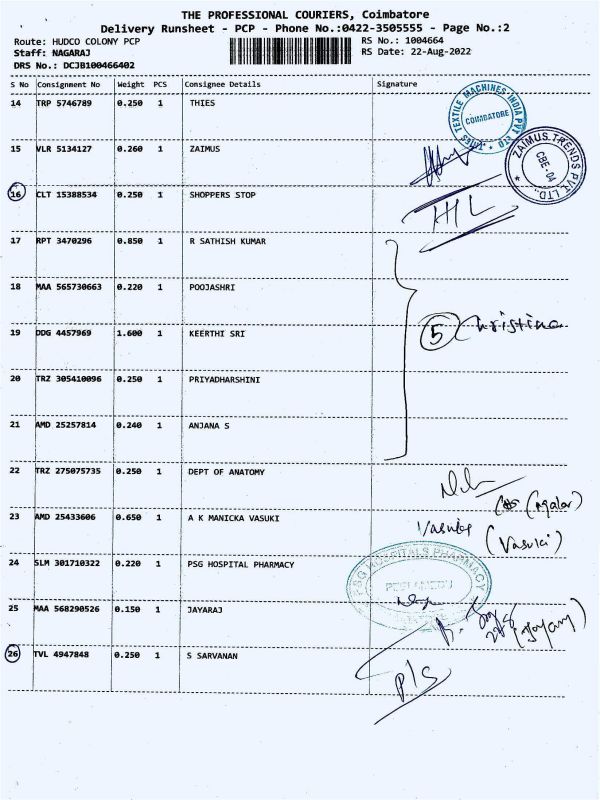 THE PROFESSIONAL COURIERS, Coimbatore
Delivery Runsheet - PCP - Phone No.:0422-3505555 - Page No.:2
Route: HUDCO COLONY PCP RS No.: 1004664
Staff: NAGARAJ RS Date: 22-Aug-2022
DRS No.: DCJB100466402
S No Consignment No Weight PCS Consignee Details Signature
14 TRP 5746789 0.250 1 THIES
TEXTILE MACHINES INDIA PVT LTD * THIES
COIMBATORE
15 VLR 5134127 0.260 1 ZAIMUS
ZAIMUS TRENDS PVT LTD.,
CBE-04
16 CLT 15388534 0.250 1 SHOPPERS STOP
17 RPT 3470296 0.850 1 R SATHISH KUMAR
18 MAA 565730663 0.220 1 POOJASHRI
19 DDG 4457969 1.600 1 KEERTHI SRI
5 Christina
20 TRZ 305410096 0.250 1 PRIYADHARSHINI
21 AMD 25257814 0.240 1 ANJANA S
22 TRZ 275075735 0.250 1 DEPT OF ANATOMY
23 AMD 25433606 0.650 1 A K MANICKA VASUKI
Vasuki
(Vasuki)
24 SLM 301710322 0.220 1 PSG HOSPITAL PHARMACY
PSG HOSPITALS PHARMACY
PEELAMEDU
25 MAA 568290526 0.150 1 JAYARAJ
26 TVL 4947848 0.250 1 S SARVANAN